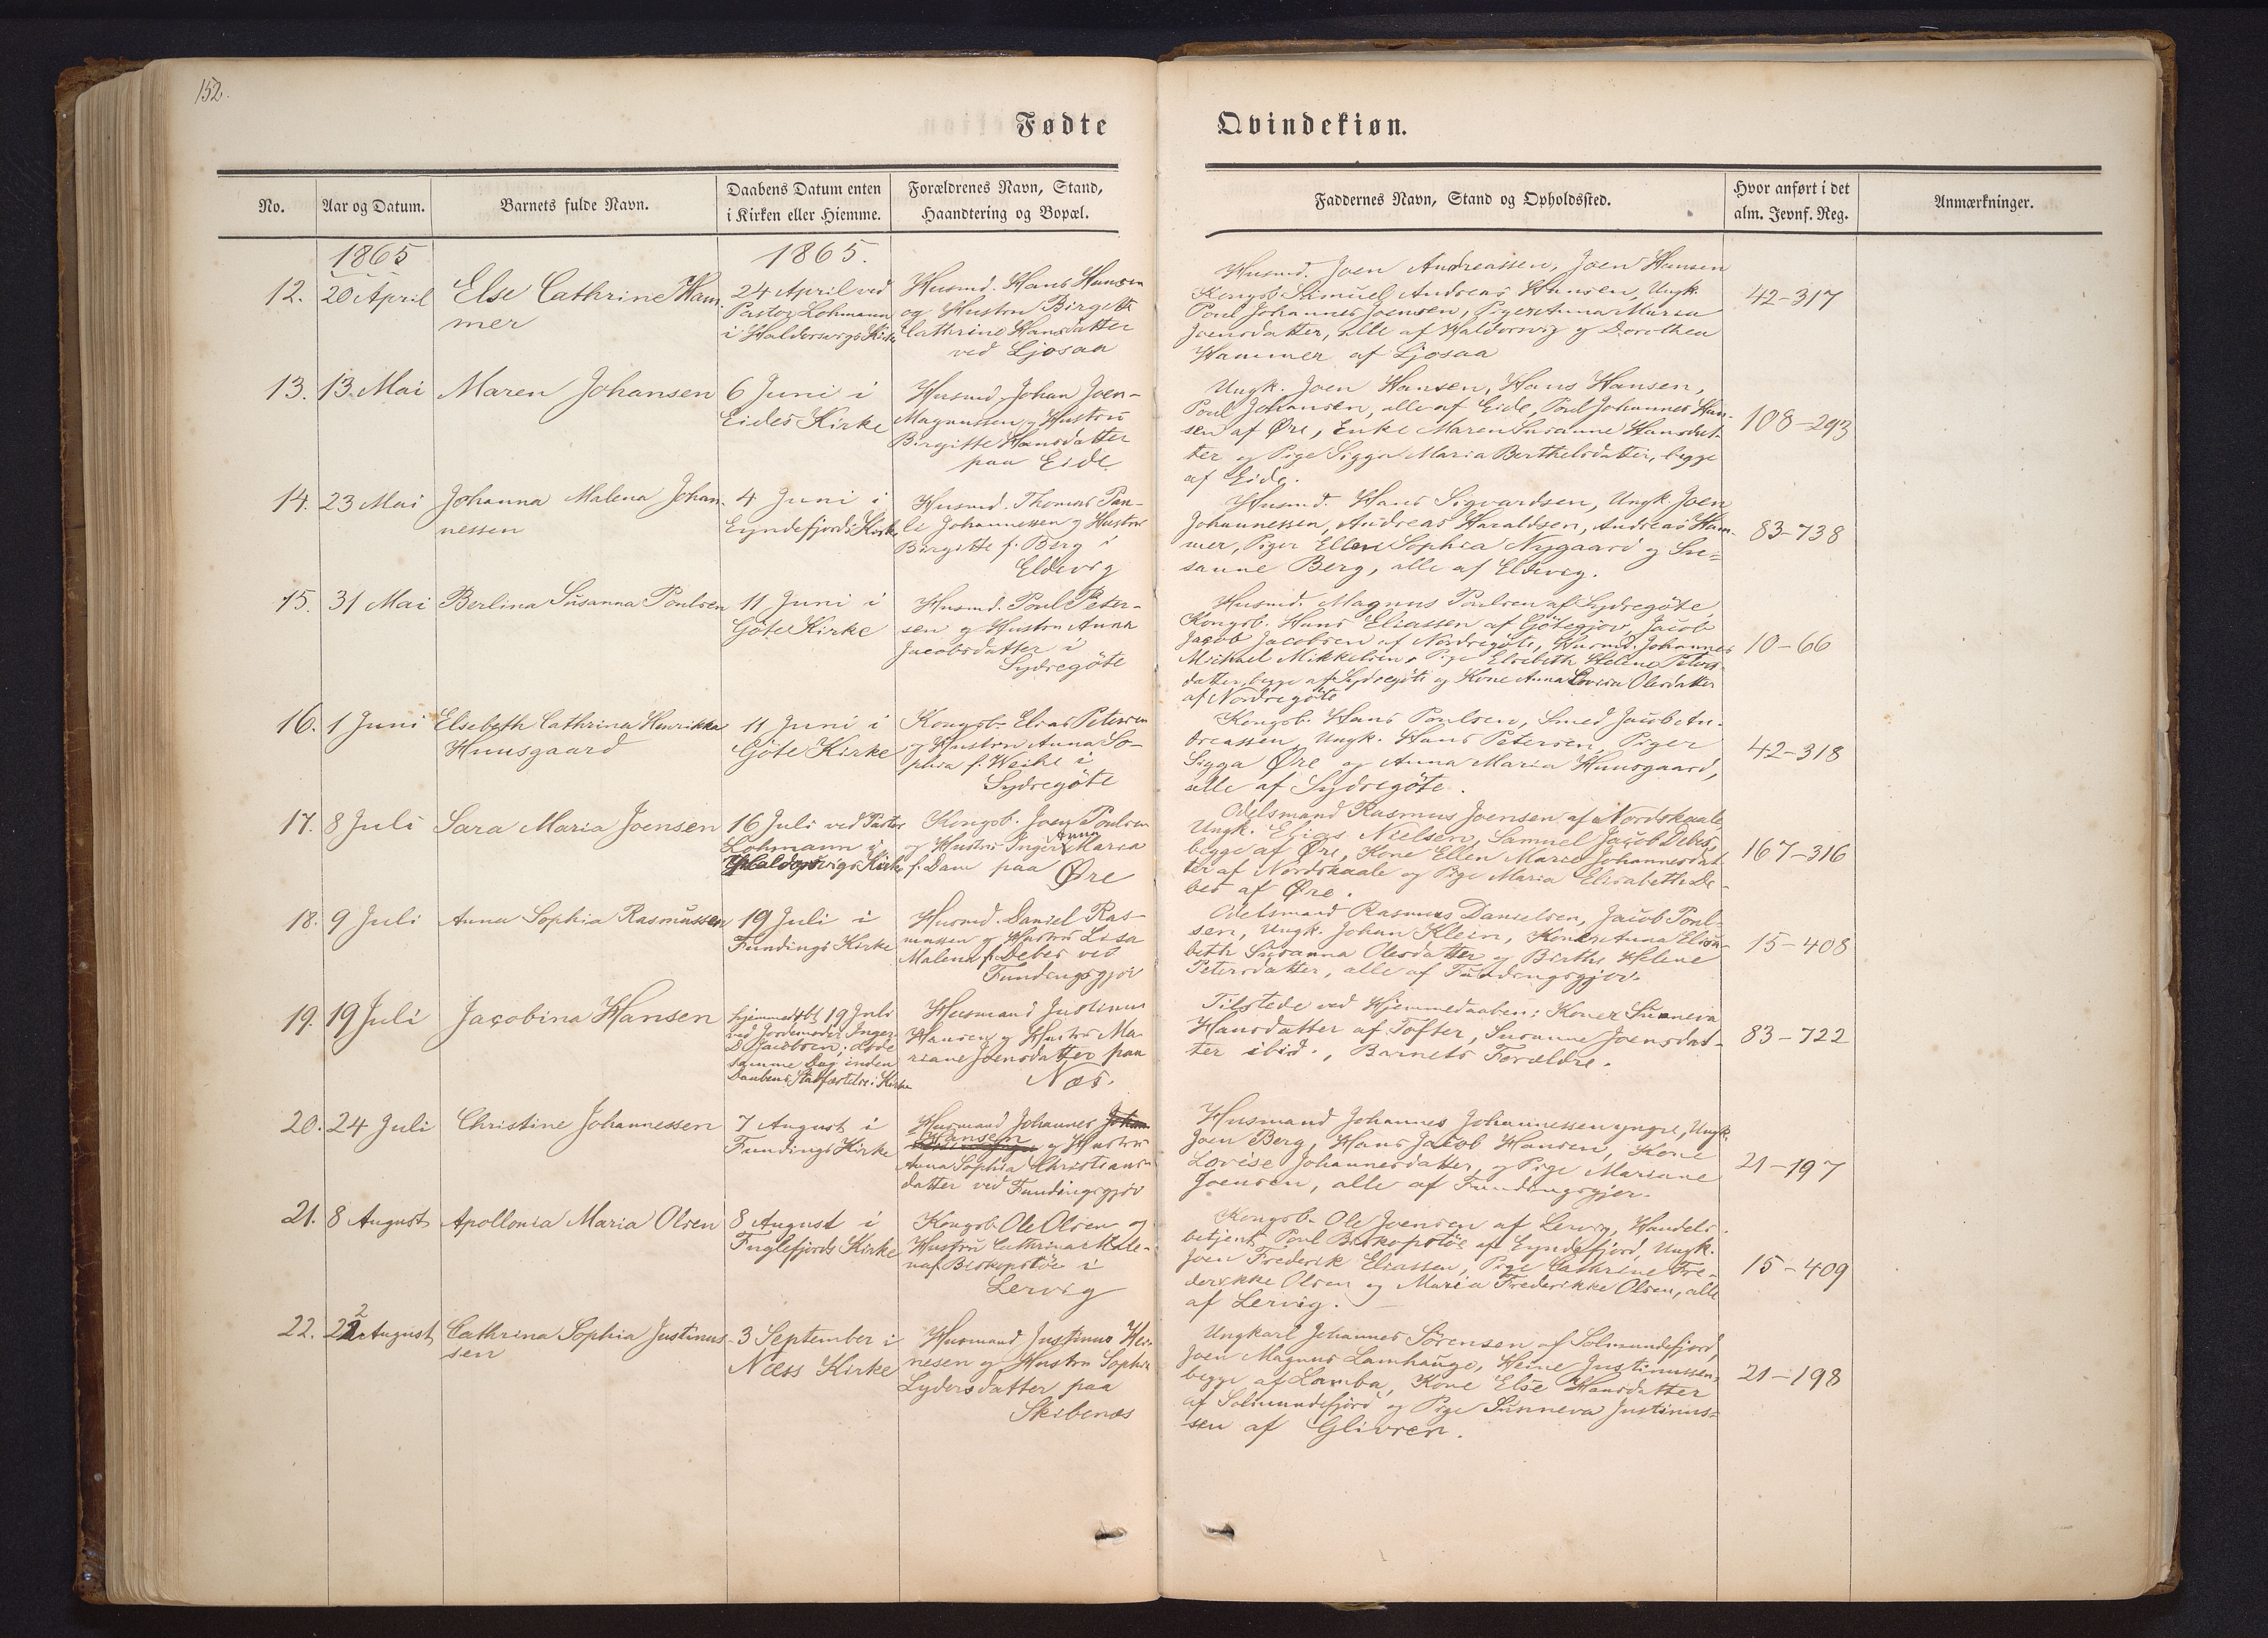 152.
Fødte
Qvindekiøn.
No.
Aar og Datum.
Barnets fulde Navn.
Daabens Datum enten
i Kirken eller Hiemme.
Forældrenes Navn, Stand,
Haandtering og Bopæl.
Faddernes Navn, Stand og Opholdssted.
Hvor anført i det
alm. Jevnf. Reg.
Anmærkninger.
1865
1865.
12.
20 April
Else Cathrine Ham-
mer
24 April ved
Pastor Lohmann
i Haldersvigs Kirke
Husmd. Hans Hansen
og Hustru Birgitte
Cathrine Hansdatter
ved Ljosaa
Husmd. Joen Andreassen, Joen Hansen
Kongsb. Samuel Andreas Hansen, Ungk.
Poul Johannes Joensen, Piger Anna Maria
Joensdatter, alle af Haldorsvig og Dorothea
Hammer af Ljosaa
42-317
13.
13 Mai
Maren Johansen
6 Juni i
Eides Kirke
Husmd. Johan Joen-
Magnussen og Hustru
Birgitte Hansdatter
paa Eide
Ungk. Joen Hansen, Hans Hansen,
Poul Johansen, alle af Eide, Poul Johannes Han-
sen af Øre, Enke Maren Susanne Hansdat-
ter og Pige Sigga Maria Berthelsdatter, begge
af Eide.
108-293
14.
23 Mai
Johanna Malena Johan-
nessen
4 Juni i
Eyndefjords Kirke
Husmd. Thomas Pau-
li Johannessen og Hustru
Birgitte f. Berg i
Eldevig
Husmd. Hans Sigvardsen, Ungk. Joen
Johannessen, Andreas Haraldsen, Andreas Ham-
mer, Piger Ellen Sophia Nygaard og Su-
sanne Berg, alle af Eldevig.
83-738
15.
31 Mai
Berlina Susanna Poulsen
11 Juni i
Göte Kirke
Husmd. Poul Peter-
sen og Hustru Anna
Jacobsdatter i
Sydregöte
Husmd. Magnus Poulsen af Sydregöte
Kongsb. Hans Eliassen af Götegjov, Jacob
Jacob Jacobsen af Nordregöte, Husmd. Johannes
Michael Mikkelsen, Pige Elsebeth Helene Peters-
datter, begge af Sydregöte og Kone Anna Lovisa Olesdatter
af Nordregöte
10-66
16.
1 Juni
Elsebeth Cathrina Henrikka
Huusgaard
11 Juni i
Göte Kirke
Kongsb. Elias Petersen
og Hustru Anna So-
phia f. Weihe i
Sydregöte
Kongsb. Hans Poulsen, Smed Jacob An-
dreassen, Ungk. Hans Petersen, Piger
Sigga Øre og Anna Maria Huusgaard,
alle af Sydregöte.
42-318
17.
8 Juli
Sara Maria Joensen
16 Juli ved Pastor
Lohmann i
Haldorsvigs Kirke
Kongsb. Joen Poulsen
Anna
og Hustru Inger Maria
f. Dam paa Øre
Odelsmand Rasmus Joensen af Nordskaale
Ungk. Elias Nielsen, Samuel Jacob Debes,
begge af Øre, Kone Ellen Marie Johannesdat-
ter af Nordskaale og Pige Maria Elisabeth De-
bes af Øre.
167-316
18.
9 Juli
Anna Sophia Rasmussen
19 Juli i
Fundings Kirke
Husmd. Daniel Ras-
mussen og Hustru Lisa
Malena f. Debes ved
Fundingsgjov
Odelsmand Rasmus Danielsen, Jacob Poul-
sen, Ungk. Johan Klein, Koner Anna Elisa-
beth Susanna Olesdatter og Birthe Helene
Petersdatter, alle af Fundingsgjov.
15-408
19.
19 Juli
Jacobina Hansen
hjemmedøbt 19 Juli
ved Jordemoder Inger
D. Jacobsen; døde
samme Dag inden
Daabens Stadfæstelse i Kirke
Husmand Justinus
Hansen og Hustru Ma-
riane Joensdatter paa
Næs.
Tilstede ved Hjemmedaaben: Koner Sunneva
Hansdatter af Tofter, Susanne Joensdat-
ter ibid., Barnets Forældre.
83-722
20.
24 Juli
Christine Johannessen
7 August i
Fundings Kirke
Husmand Johannes Johan
Hansen
og Hustru
Anna Sophia Christians-
datter ved Fundingsgjov
Husmand Johannes Johannessen yngre, Ungk.
Joen Berg, Hans Jacob Hansen, Kone
Lovise Johannesdatter, og Pige Mariane
Joensen, alle af Fundingsgjov.
21-197
21.
8 August
Apollonia Maria Olsen
8 August i
Fuglefjords Kirke
Kongsb. Ole Olsen og
Hustru Cathrina Male-
na f. Biskopstöe i
Lervig
Kongsb. Ole Joensen af Lervig, Handels-
betjent Poul Biskopstöe af Eyndefjord, Ungk.
Joen Frederik Eliassen, Pige Cathrine Fre-
derikke Olsen og Maria Frederikke Olsen, alle
af Lervig.
15-409
22.
22 August
Cathrina Sophia Justinus-
sen
3 September i
Næss Kirke
Husmand Justinus Hei-
nesen og Hustru Sophia
Lydersdatter paa
Skibenæs
Ungkarl Johannes Sörensen af Solmundefjord,
Joen Magnus Lamhauge, Heine Justinussen,
begge af Lamba, Kone Else Hansdatter
af Solmundefjord og Pige Sunneva Justinus-
sen af Glivren.
21-198